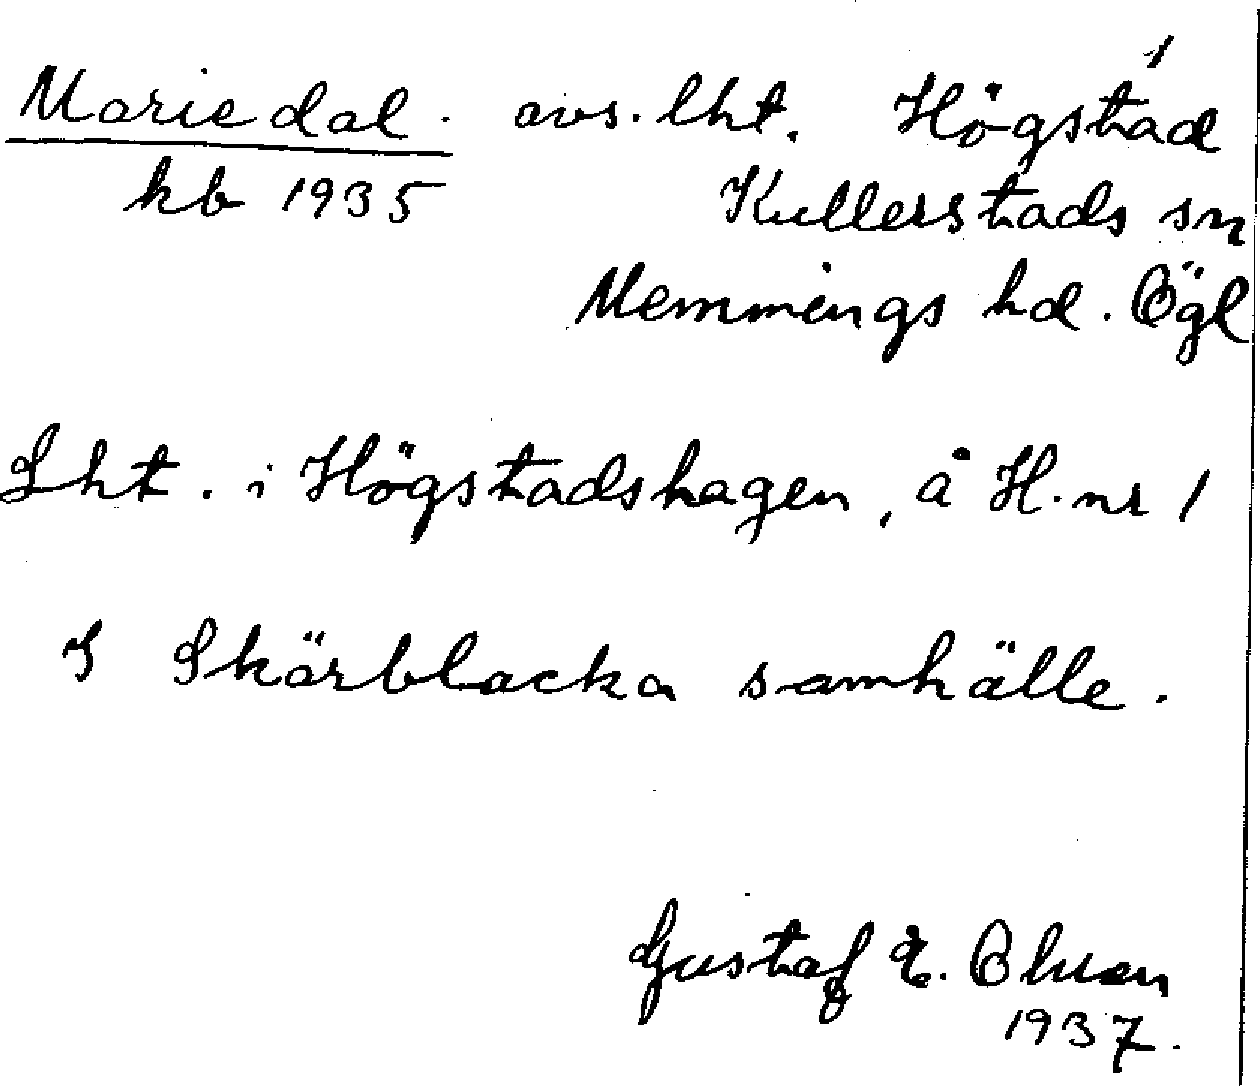 Mariedal. avs. lht. Högstad 1
kb 1935 Kullerstads sn
Memmings hd. Ögl
Lht. i Högstadshagen, å H. nr 1
I Skärblacka samhälle.
Gustaf E.
1937.